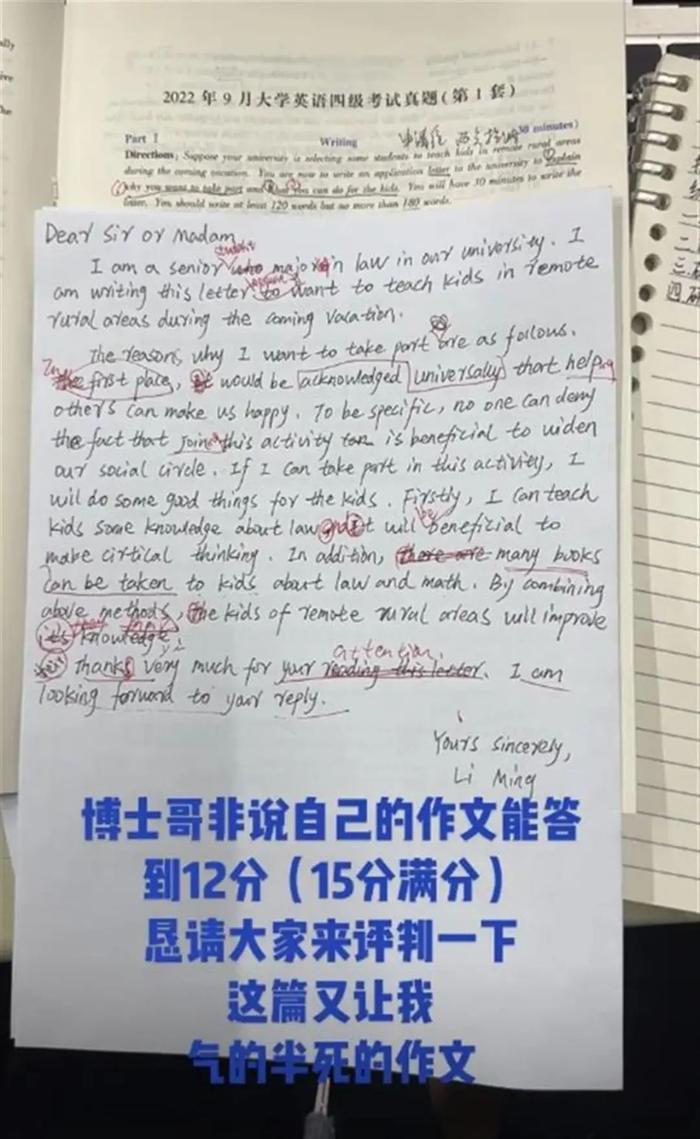 2022年9月大学英语四级考试真题(第1套)
Part I Writing 30 minutes)
Directions: Suppose your university is selecting some students to teach kids in remote rural areas
during the coming vacation. You are now to write an application letter to the university to explain
why you want to take part and what you can do for the kids. You will have 30 minutes to write the
letter. You should write at least 120 words but no more than 180 words.
Dear Sir or Madam
student
I am a senior who major in law in our university. I
am writing this letter to want to teach kids in remote
rural areas during the coming vacation.
The reasons why I want to take part are as follows.
In
the first place, it would be acknowledged universally that helping
others can make us happy. To be specific, no one can deny
the fact that join this activity can is beneficial to widen
our social circle. If I can take part in this activity, I
will do some good things for the kids. Firstly, I can teach
be
kids some knowledge about law and it will beneficial to
make cirtical thinking. In addition, there are many books
can be taken to kids about law and math. By combining
above methods, the kids of remote rural areas will improve
its knowledge.
attention.
Thanks very much for your reading this letter. I am
looking forward to your reply.
Yours sincerely,
Li Ming
博士哥非说自己的作文能答
到12分(15分满分)
恳请大家来评判一下
这篇又让我
气的半死的作文